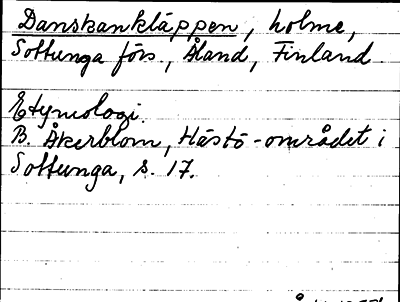 Danskankläppen, holme,
Sottunga förs., Åland, Finland
Etymologi.
B. Åkerblom, Hästö-området i
Sottunga, s. 17.